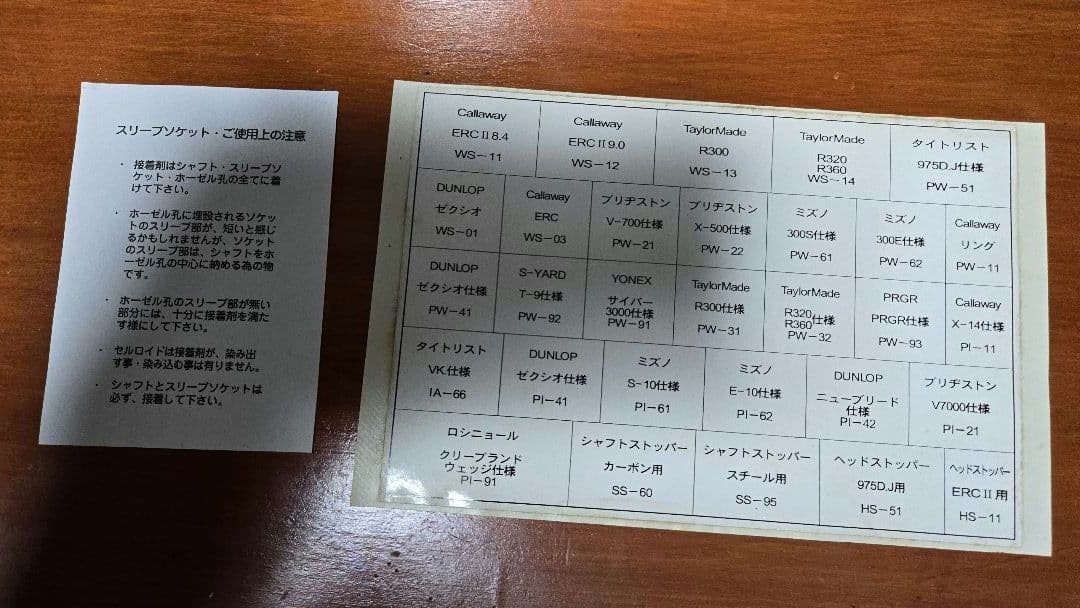 スリーブソケット・ご使用上の注意
・ 接着剤はシャフト・スリーブソ
ケット・ホーゼル孔の全てに着
けて下さい。
・ ホーゼル孔に埋設されるソケッ
トのスリーブ部が、短いと感じ
るかもしれませんが、ソケット
のスリーブ部は、シャフトをホ
ーゼル孔の中心に納める為の物
です。
・ ホーゼル孔のスリーブ部が無い
部分には、十分に接着剤を満た
す様にして下さい。
・ セルロイドは接着剤が、染み出
す事・染み込む事は有りません。
・ シャフトとスリーブソケットは
必ず、接着して下さい。
Callaway
ERCⅡ8.4
WS-11
Callaway
ERCⅡ9.0
WS-12
TaylorMade
R300
WS-13
TaylorMade
R320
R360
WS-14
タイトリスト
975D.J仕様
PW-51
DUNLOP
ゼクシオ
WS-01
Callaway
ERC
WS-03
ブリヂストン
V-700仕様
PW-21
ブリヂストン
X-500仕様
PW-22
ミズノ
300S仕様
PW-61
ミズノ
300E仕様
PW-62
Callaway
リング
PW-11
DUNLOP
ゼクシオ仕様
PW-41
S-YARD
T-9仕様
PW-92
YONEX
サイバー
3000仕様
PW-91
TaylorMade
R300仕様
PW-31
TaylorMade
R320仕様
R360
PW-32
PRGR
PRGR仕様
PW-93
Callaway
X-14仕様
PI-11
タイトリスト
VK.仕様
IA-66
DUNLOP
ゼクシオ仕様
PI-41
ミズノ
S-10仕様
PI-61
ミズノ
E-10仕様
PI-62
DUNLOP
ニューブリード
仕様
PI-42
ブリヂストン
V7000仕様
PI-21
ロシニョール
クリーブランド
ウェッジ仕様
PI-91
シャフトストッパー
カーボン用
SS-60
シャフトストッパー
スチール用
SS-95
ヘッドストッパー
975D.J用
HS-51
ヘッドストッパー
ERCⅡ用
HS-11